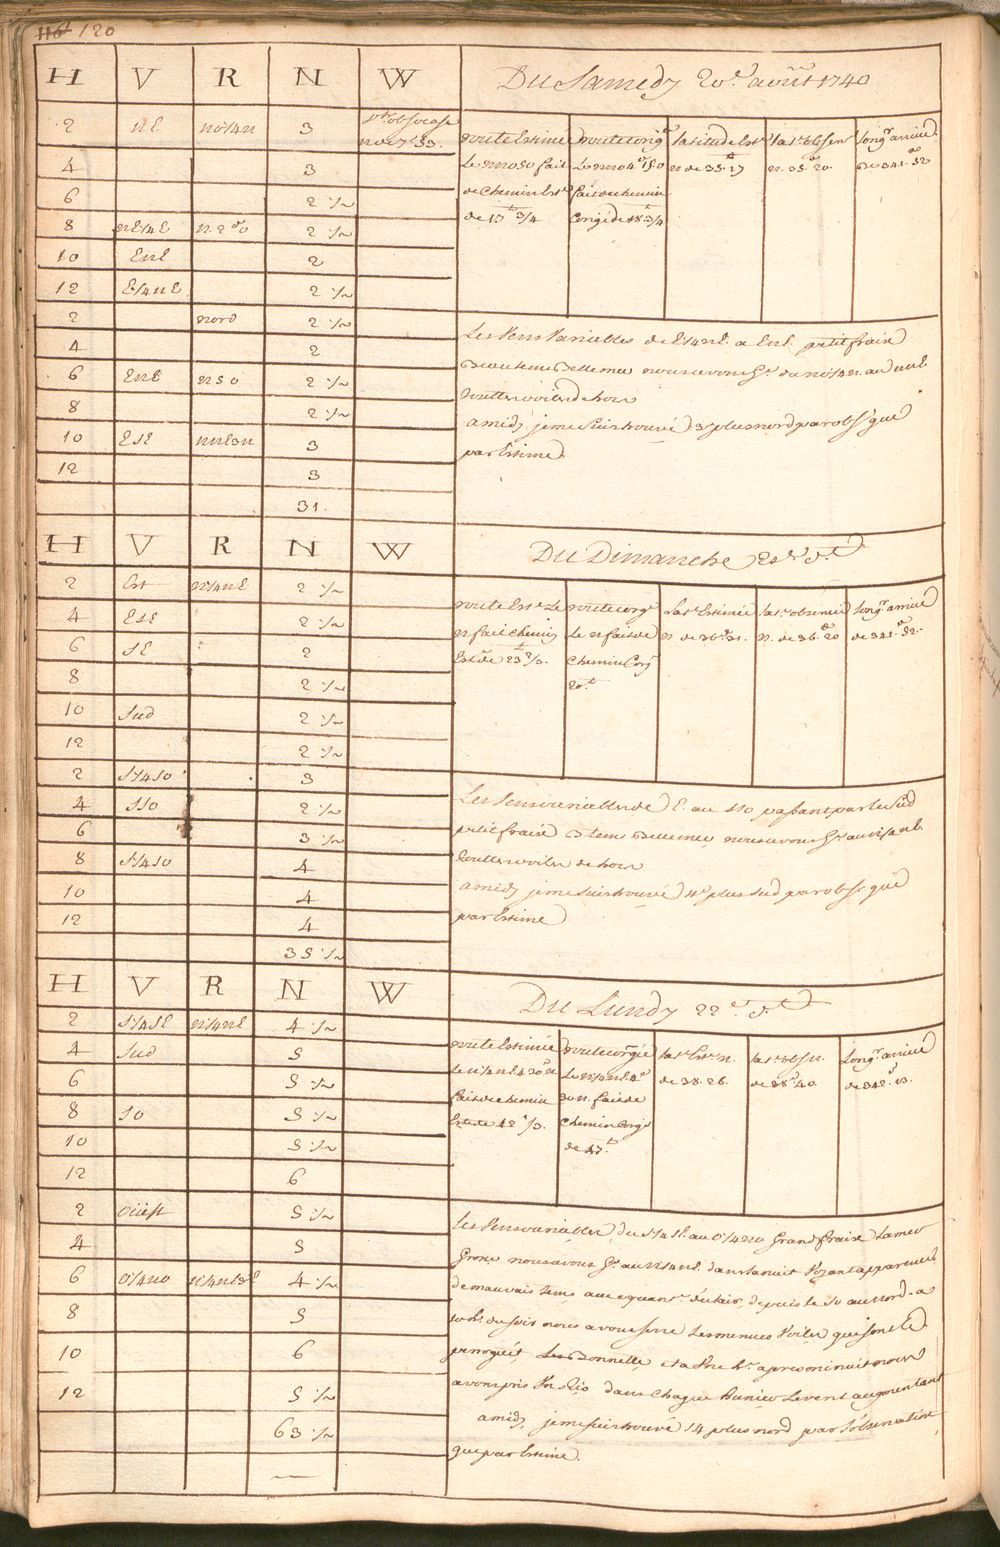 116 120
H V R N W Du Samedy 20e aoust 1740
2 NE no1/4n 3
4 3
6 2 1/2
8 nE1/4E 2 1/2
10 EnE 2
12 E1/4nE 2 1/2
2 nord 2 1/2
4 2
6 EnE n 5 o 2 1/2
8 2 1/2
10 ESE 3
12 3
31.
route Estimée
fait
de Chemin Este
de 15 3/4
route corigé
fait de chemin
Corigé de 18 3/4
latitude Este
n de 35. 17
late obser
n. 35. 20.
longr arivée
de 341. 52
Les Vens Variables de E1/4nE a EnE petit fraix
beau tems belle mer nous avons Gé du no1/4n. au nnE
touttes voiles dehors
a midy je me suis trouvé 3' plus nord par obse que
par Estime
H V R N W Du Dimanche 21e de
2 Est n1/4nE 2 1/2
4 ESE 2 1/2
6 SE 2
8 2 1/2
10 Sud 2 1/2
12 2 1/2
2 S1/4SO 3
4 SSO 2 1/2
6 3 1/2
8 S1/4SO 4
10 4
12 4
35 1/2
route Este Le
n fait chemin
Este de 23 2/3.
route corigé
Le n fait de
chemin Corigé
20
late Estimée
n. de 36. 31.
late observée
n. de 36. 20
longr arivée
de 341. 52.
Les Vens variables de E. au SSO passant par le Sud
petit fraix b tems belle mer nous avons Gé au n1/4nE.
touttes voiles de hors
a midy je me suis trouvé 11' plus sud par obse que
par Estime
H V R N W Du Lundy 22e de
2 S1/4SE n1/4nE 4 1/2
4 Sud 5
6 5 1/2
8 SO 5 1/2
10 5 1/2
12 6
2 oüest 5 1/2
4 5
6 O1/4nO 4 1/2
8 5
10 6
12 5 1/2
63 1/2
route Estimée
Le n1/4nE 4 30 n
fait de chemin
Este de 42 1/3.
route corigée
Le n1/4nE 4
30 n. fait de
chemin Corigé
de 47.
late Este n.
de 38. 26.
late obs n.
de 38. 40.
Longr arivée
de 342. 13.
Les Vens variables du S1/4SE. au O1/4no Grand fraix La mer
Grosse nous avons Gé au n1/4nE. dans la nuit Voyant apparence
de mauvais tems avec quantité d'éclairs depuis le So au nord. a
10 h. du soir nous avons serré Les menues Voiles que sont Le
peroquet, Les Bonnette, et a Une h. apres minuit nous
avons pris Un Ris dans chaque hunier Le vent augmentant
a midy je me suis trouvé 14 plus nord par l'observation
que par Estime.